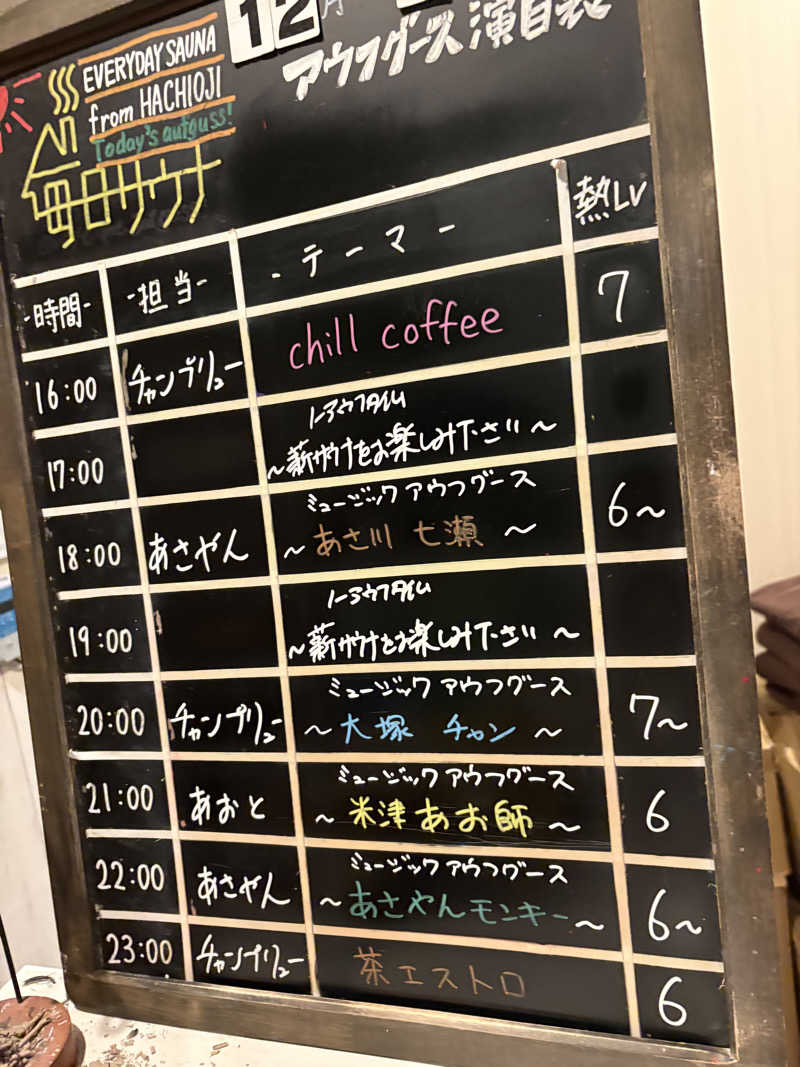 12月
アウフグース 演目表
EVERYDAY SAUNA
from HACHIOJI
Today's aufguss!
毎日サウナ
-時間- -担当- ・テーマー 熱LV
16:00 チャンプリュー chill coffee 7
17:00 ノーアウフタイム
～薪サウナをお楽しみ下さい～
18:00 あさやん ミュージック アウフグース 6～
～あさ川 七瀬～
19:00 ノーアウフタイム
～薪サウナをお楽しみ下さい～
20:00 チャンプリュー ミュージック アウフグース 7～
～大塚 チャン～
21:00 あおと ミュージック アウフグース 6
～米津あお師～
22:00 あさやん ミュージック アウフグース 6～
～あさやんモンキー～
23:00 チャンプリュー 茶エストロ 6